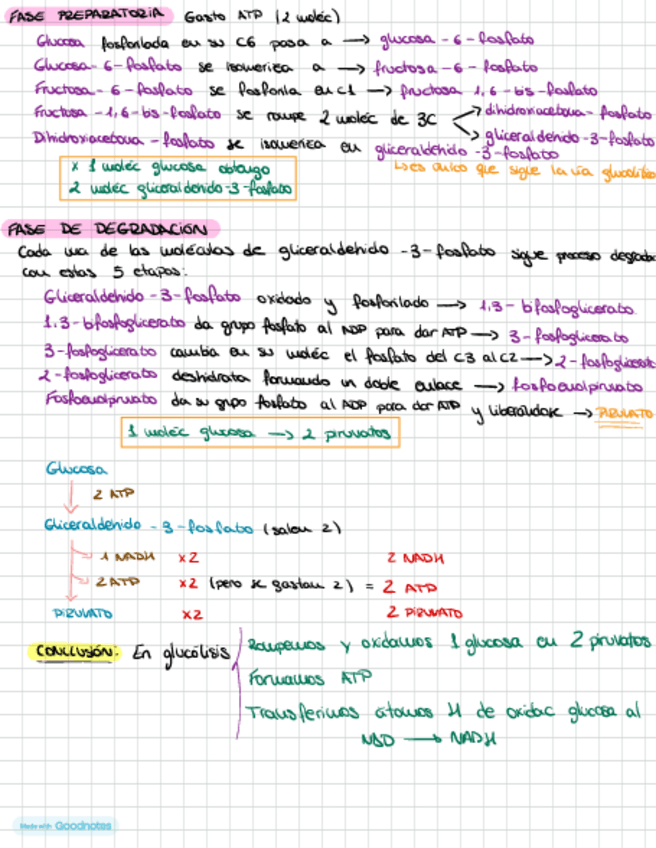 FASE PREPARATORIA Gasto ATP (2 moléc)
Glucosa fosforilada en su C6 pasa a → glucosa-6-fosfato
Glucosa-6-fosfato se isomeriza a → fructosa-6-fosfato
Fructosa-6-fosfato se fosforila en C1 → fructosa 1,6-bis-fosfato
Fructosa-1,6-bis-fosfato se rompe 2 moléc de 3C dihidroxiacetona-fosfato
gliceraldehido-3-fosfato
Dihidroxiacetona-fosfato se isomeriza en gliceraldehido-3-fosfato
↳ es único que sigue la vía glucolític
x 1 moléc glucosa obtengo
2 moléc gliceraldehido-3-fosfato
FASE DE DEGRADACIÓN
Cada una de las moléculas de gliceraldehido-3-fosfato sigue proceso degrada
con estas 5 etapas:
Gliceraldehido-3-fosfato oxidado y fosforilado → 1,3-bifosfoglicerato
1,3-bifosfoglicerato da grupo fosfato al ADP para dar ATP → 3-fosfoglicerato
3-fosfoglicerato cambia en su moléc el fosfato del C3 al C2 → 2-fosfoglicerat
2-fosfoglicerato deshidrata formando un doble enlace → fosfoenolpiruvato
Fosfoenolpiruvato da su grupo fosfato al ADP para dar ATP y liberándose → PIRUVATO
1 moléc glucosa → 2 piruvatos
Glucosa
2 ATP
Gliceraldehido-3-fosfato (salen 2)
1 NADH x2 2 NADH
2 ATP x2 (pero se gastan 2) = 2 ATP
PIRUVATO x2 2 PIRUVATO
CONCLUSIÓN: En glucólisis
Rompemos y oxidamos 1 glucosa en 2 piruvatos
Formamos ATP
Transferimos átomos H de oxidac glucosa al
NAD → NADH
Made with Goodnotes